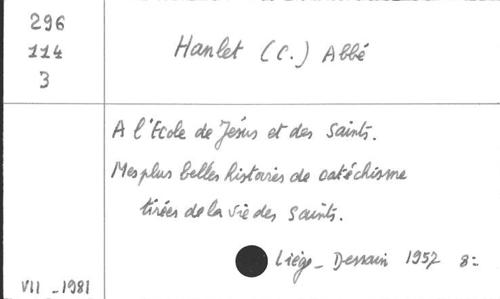 296
114
3
Hanlet (C.) Abbé
A l'Ecole de Jésus et des Saints.
Mes plus belles histoires de catéchisme
tirées de la vie des Saints.
Liège - Dessain 1957 8=
VII - 1981